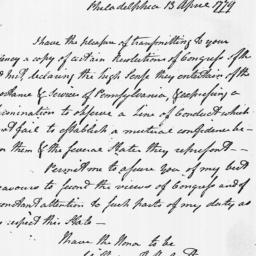 Philadelphia 13 April 1779
I have the pleasure of transmitting to your
ency a copy of certain Resolutions of Congress of the
inst declaring the high Sense they entertain of the
ortance & Services of Pennsylvania, & expressing a
ermination to observe a Line of Conduct which
not fail to establish a mutual confidence be-
n them & the several States they represent—
Permit me to assure you of my best
eavours to second the views of Congress and of
constant attention to such parts of my duty as
respect this State—
I have the Honor to be